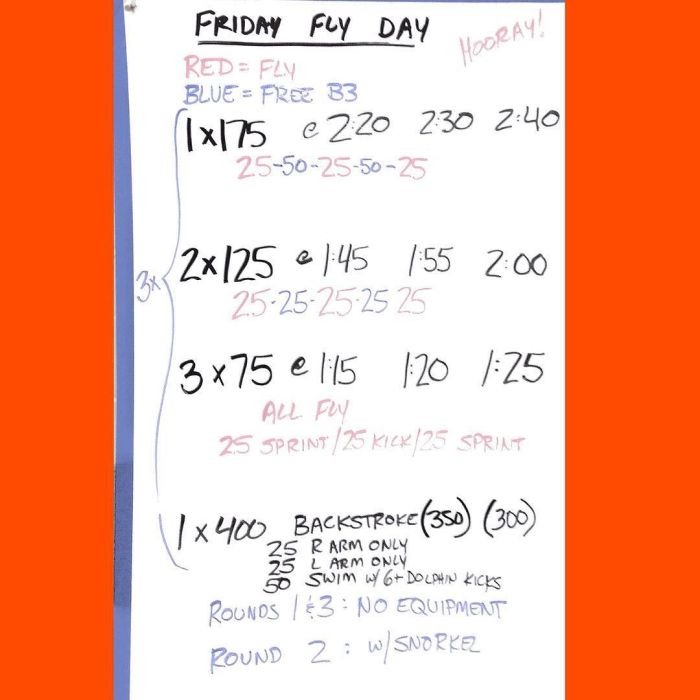 FRIDAY FLY DAY
HOORAY!
RED = FLY
BLUE = FREE B3
1x175 @ 2:20 2:30 2:40
25-50-25-50-25
3x
2x125 @ 1:45 1:55 2:00
25-25-25-25 25
3 x 75 @ 1:15 1:20 1:25
ALL FLY
25 SPRINT/25 KICK/25 SPRINT
1 x 400 BACKSTROKE (350) (300)
25 R ARM ONLY
25 L ARM ONLY
50 SWIM W/6+ DOLPHIN KICKS
ROUNDS 1 & 3: NO EQUIPMENT
ROUND 2: W/SNORKEL